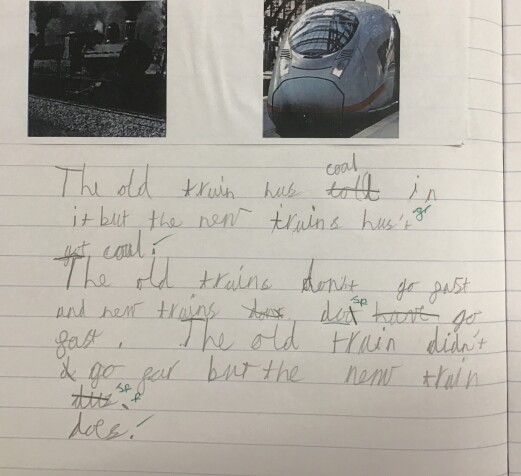 The old train has coal in
it but the new trains has't gr
got coal.
The old trains don't go fast
and new trains sp go
fast. The old train didn't
go far but the new train
sp
does.